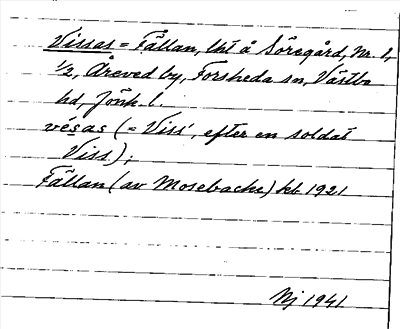 Vissas = Fällan, lht å Söregård, Nr. 1,
1/2, Åreved by, Forsheda sn, Västbo
hd, Jönk. l.
vésas (= Viss', efter en soldat
Viss);
Fällan (av Mosebacke) kb 1921
Nj 1941